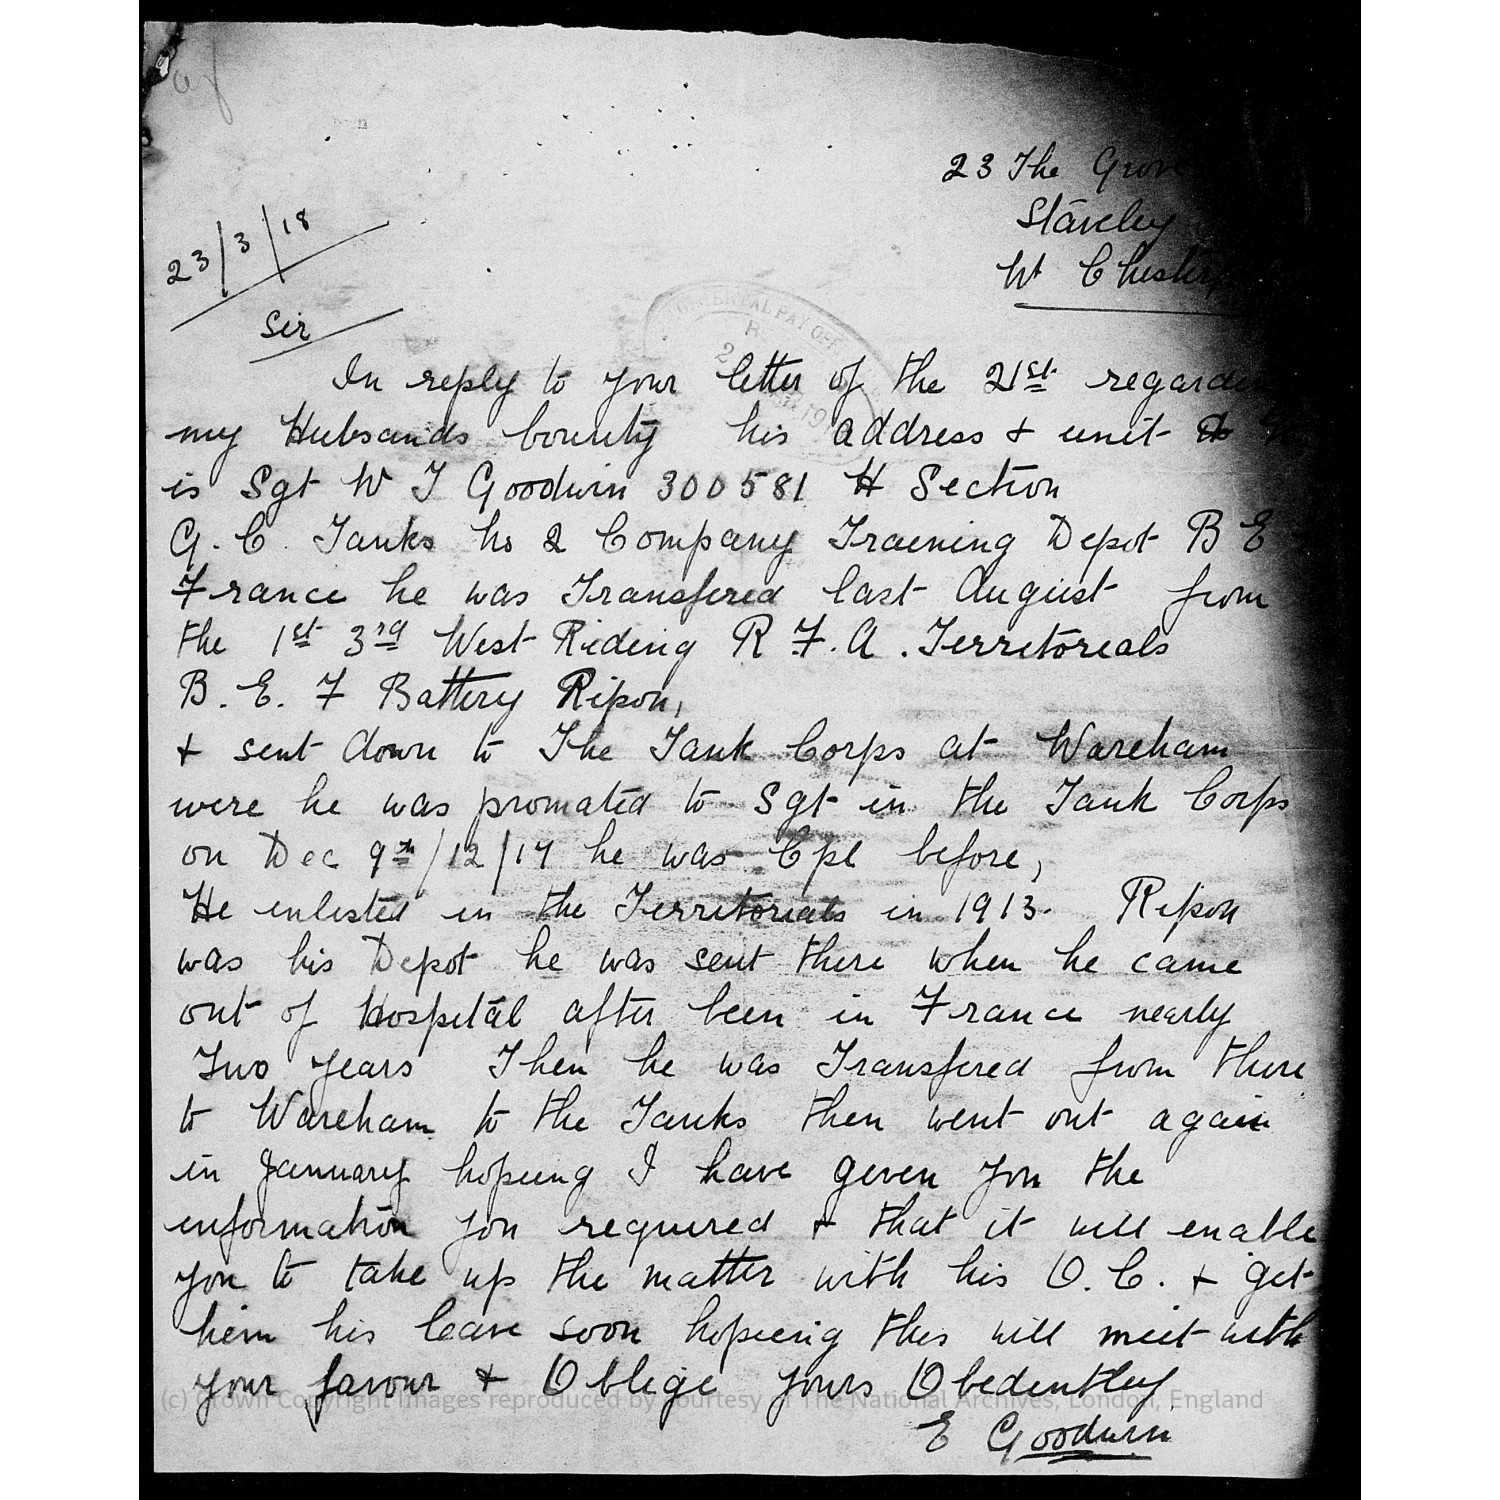 23 The Grove
Staveley
Nr Chester
23/3/18
Sir
TERRITORIAL PAY OFF
In reply to your letter of the 21st regarding
my Hubsands bounty his address & unit
is Sgt W J Goodwin 300581 H Section
G. C. Tanks No 2 Company Traening Depot B E
France he was Transfered last August from
the 1st 3rd West Riding R F. A. Territoreals
B. E. F Battery Ripon,
& sent down to The Tank Corps at Wareham
were he was promated to Sgt in the Tank Corps
on Dec 9th/12/17 he was Cpl before,
He enlisted in the Territorials in 1913. Ripon
was his Depot he was sent there when he came
out of Hospital after been in France nearly
Two years Then he was Transfered from there
to Wareham to the Tanks then went out again
in January hopeing I have given you the
information you required & that it will enable
you to take up the matter with his O. C. & get
him his leave soon hopeing this will meet with
your favour & Oblige yours Obedentley
E Goodwin
(c) Crown Copyright Images reproduced by courtesy of The National Archives, London, England